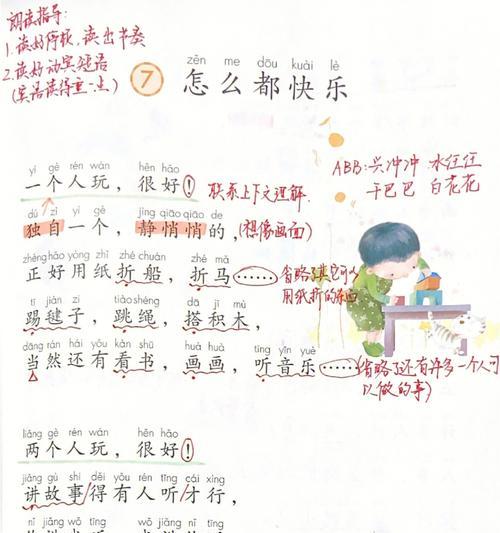 朗读指导:
1.读好停顿,读出节奏
2.读好动宾短语
(宾语读得重一点)
zěn me dōu kuài lè
7 怎么都快乐
ABB:兴冲冲 水汪汪
干巴巴 白花花
yí gè rén wán hěn hǎo
一个人玩,很好!
联系上下文理解.
dú zì yí gè jìng qiāo qiāo de
独自一个,静悄悄的,(想像画面)
zhèng hǎo yòng zhǐ zhé chuán zhé mǎ
正好用纸折船,折马……
省略了其它可以
用纸折的东西
tī jiàn zi tiào shéng dā jī mù
踢毽子,跳绳,搭积木,
dāng rán hái yǒu kàn shū huà huà tīng yīn yuè
当然还有看书,画画,听音乐……
(省略了还有许多一个人可
以做的事)
liǎng gè rén wán hěn hǎo
两个人玩,很好!
jiǎng gù shi děi yǒu rén tīng cái xíng
讲故事/得有人听/才行,
nǐ jiǎng wǒ tīng wǒ jiǎng nǐ tīng